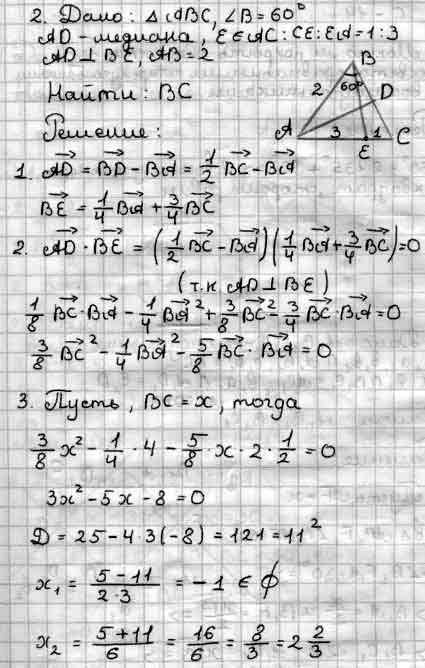 2. Дано: △ABC, ∠B = 60°
AD - медиана, E ∈ AC: CE:EA = 1:3
AD ⊥ BE, AB = 2
Найти: BC
Решение:
B
2
60°
D
A
3
E
1
C
1. →AD = →BD - →BA = 1/2 →BC - →BA
→BE = 1/4 →BA + 3/4 →BC
2. →AD · →BE = (1/2 →BC - →BA)(1/4 →BA + 3/4 →BC) = 0
(т.к AD ⊥ BE)
1/8 →BC · →BA - 1/4 →BA² + 3/8 →BC² - 3/4 →BC · →BA = 0
3/8 →BC² - 1/4 →BA² - 5/8 →BC · →BA = 0
3. Пусть, BC = x, тогда
3/8 x² - 1/4 · 4 - 5/8 · x · 2 · 1/2 = 0
3x² - 5x - 8 = 0
D = 25 - 4 · 3(-8) = 121 = 11²
x₁ = (5 - 11)/(2 · 3) = -1 ∈ ∅
x₂ = (5 + 11)/6 = 16/6 = 8/3 = 2 2/3